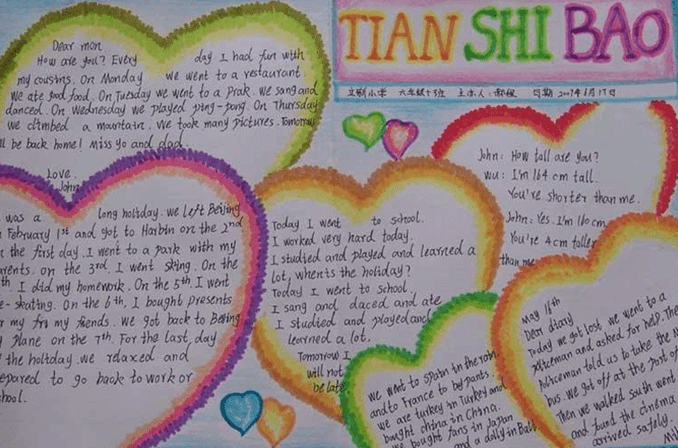 TIAN SHI BAO
Dear mon
How are you? Every day I had fun with
my cousins. On Monday we went to a restaurant.
We ate good food. On Tuesday we went to a Prak. We sang and
danced. On Wednesday we played ping-pong. On Thursday
we climbed a mountain. We took many pictures. Tomorrow
ll be back home! Miss yo and dad.
Love.
John
was a long holiday. we left Beijing
February 1st and got to Harbin on the 2nd
the first day. I went to a park with my
on the 3rd I went sking. On the
th I did my homework. On the 5th I went
-skating. On the 6th, I bought presents
my fri my friends. we got back to Beijing
plane on the 7th. For the last day
the holiday we rdaxed and
to go back to work or
Today I went to school.
I worked very hard today.
I studied and played and learned a
lot, when's the holiday?
Today I went to school
I sang and daced and ate
I studied and played and
learned a lot.
Tomorrow I
will not
be late
John: How tall are you?
wu: I'm 164 cm tall.
You're shorter than me.
John: Yes. I'm 160 cm
You're 4 cm taller
than me
We went to Spain in the
and to France to by pants
we are turkey in Turkey and
bught china in China.
We bought fans in Japan
and a dolly in
May 16th
Dear diary
Today we got lost. we went to a
Policeman and asked for help. The
Policeman told us to take the
bus. we got off at the post of
Then we walked south went
and fund the cinema
arrived safely.